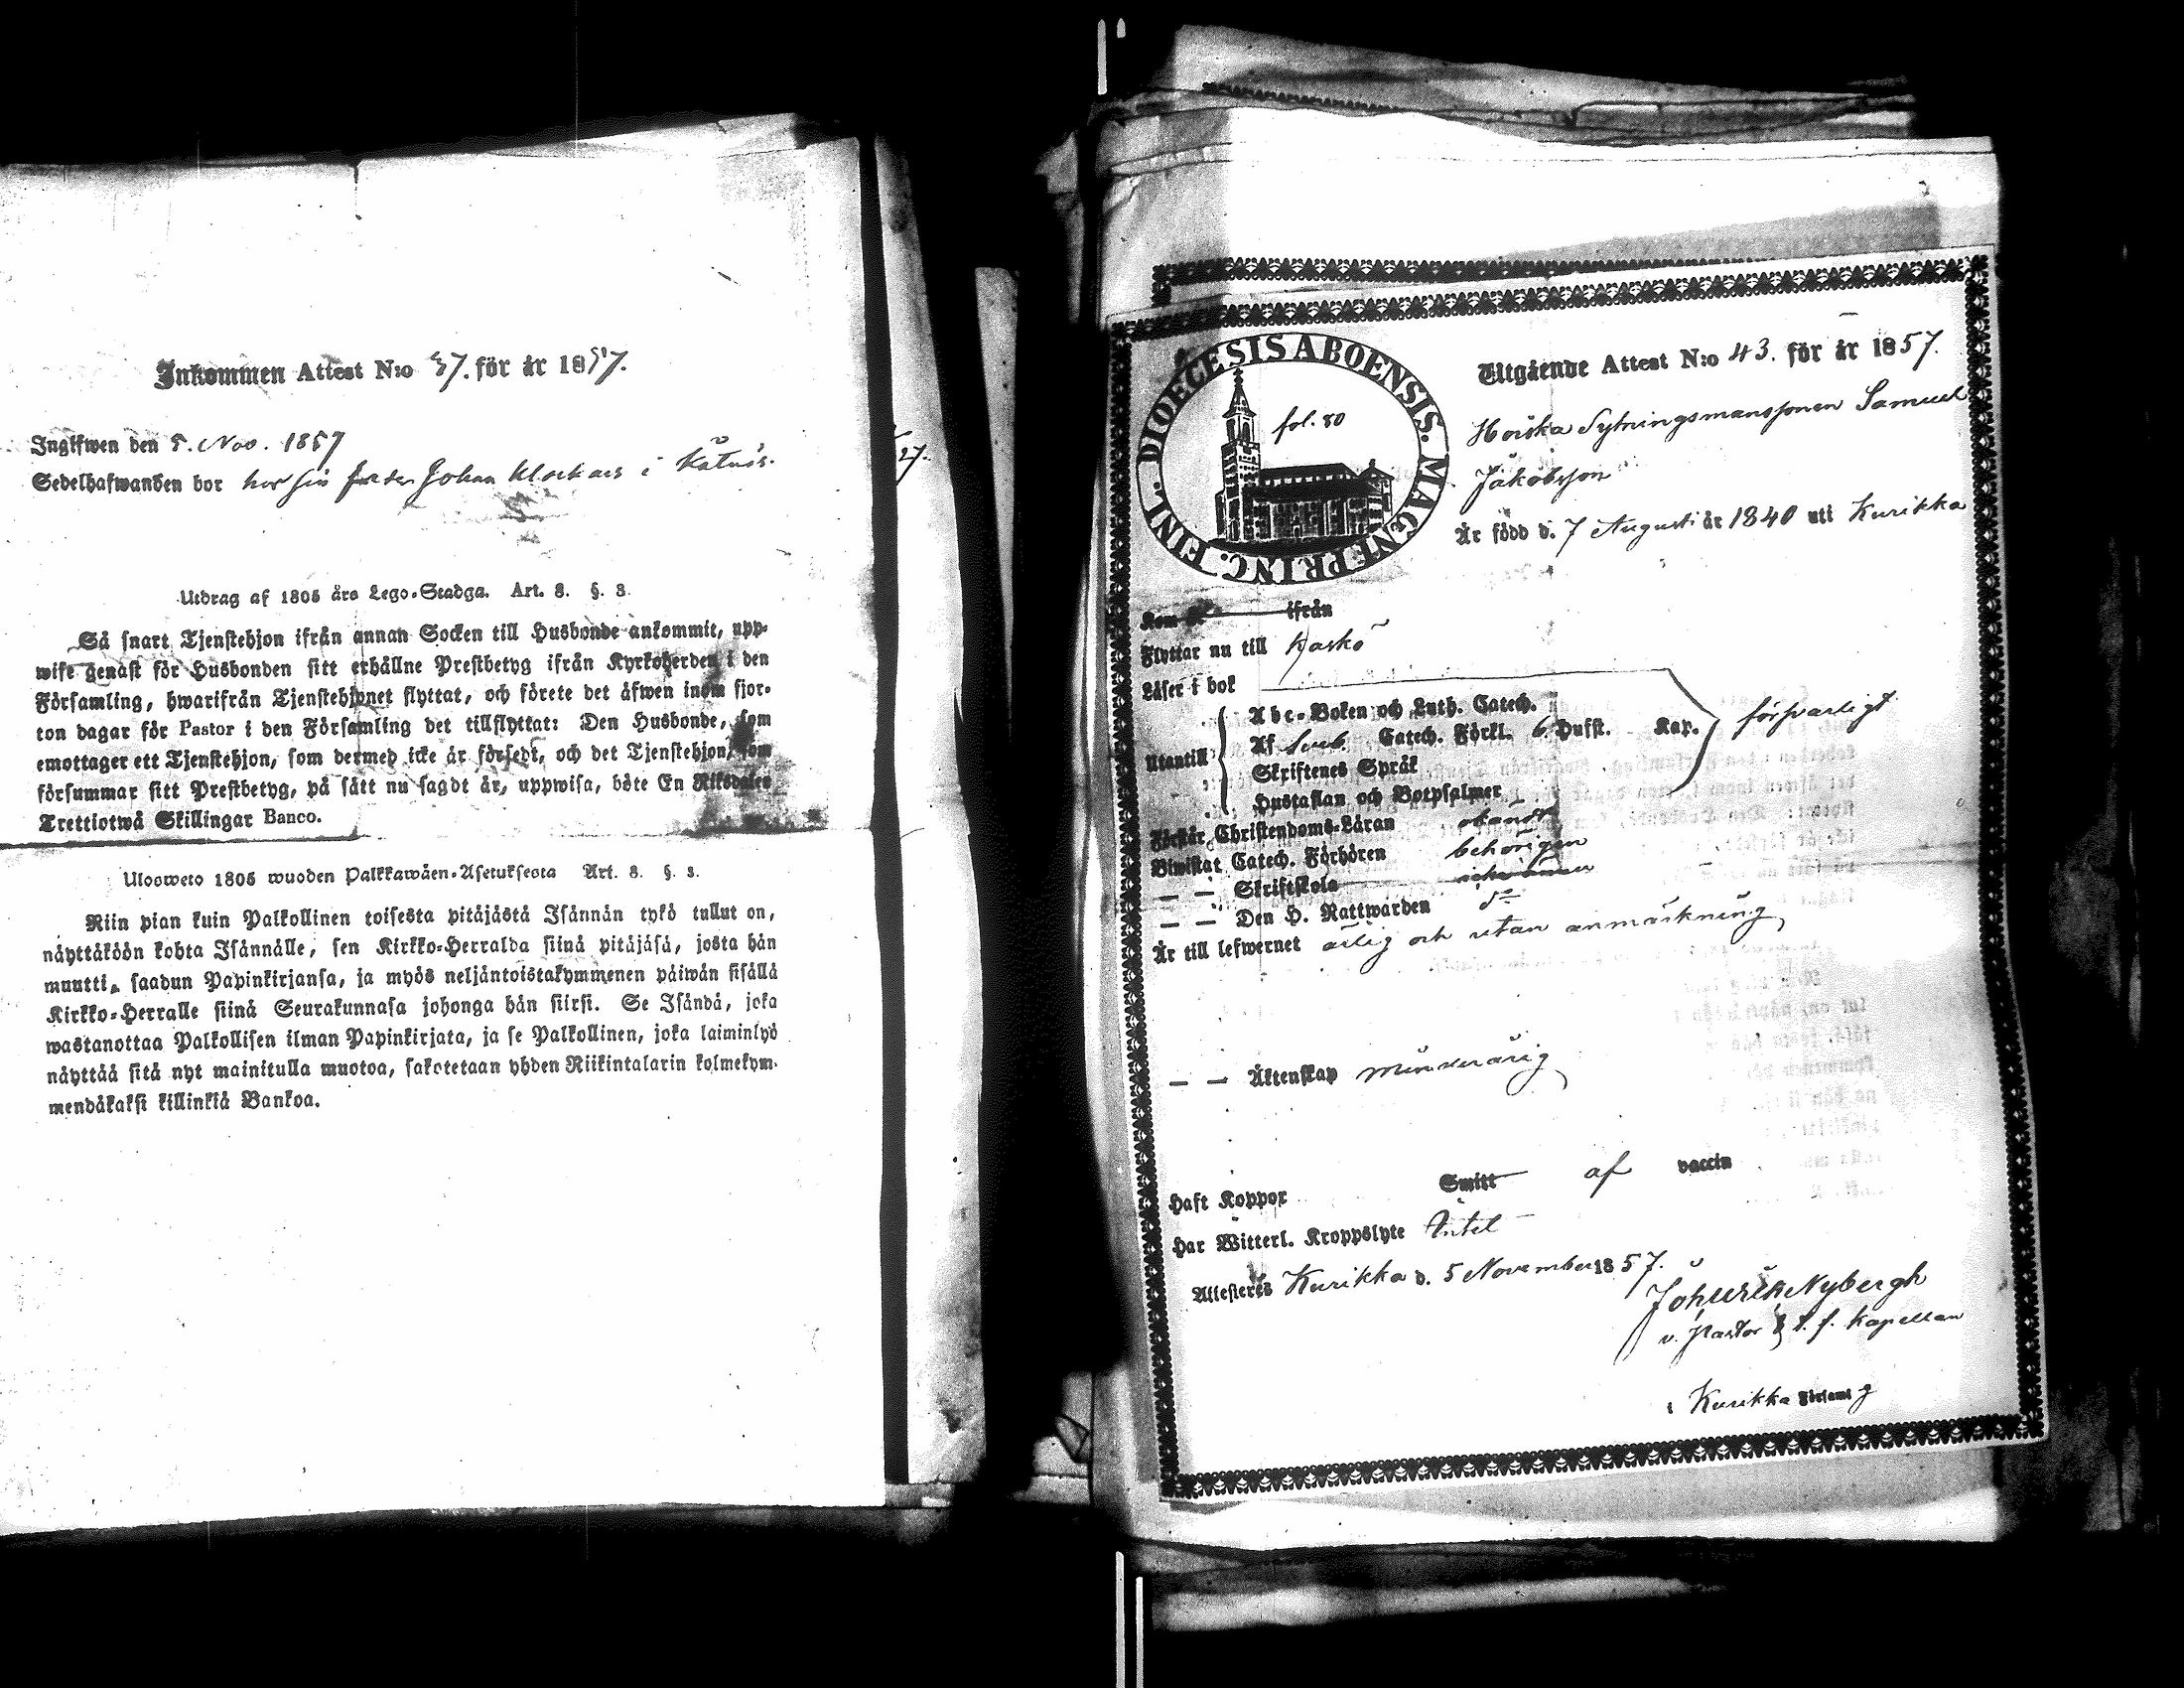 Inkommen Attest N:o 37. för år 1857.
Inglifwen den 5. Nov. 1857
Sedelhafwanden bor hos sin fader Johan Klockars i
Utdrag af 1805 års Lego-Stadga. Art. 8. §. 3.
Så snart Tjenstehjon ifrån annan Socken till Husbonde ankommit, upp-
wise genast för Husbonden sitt erhållne Prestbetyg ifrån Kyrkoherden i den
Församling, hwarifrån Tjenstehjonet flyttat, och förete det äfwen inom fjor-
ton dagar för Pastor i den Församling det tillflyttat: Den Husbonde, som
emottager ett Tjenstehjon, som dermed icke är försedt, och det Tjenstehjon, som
försummar sitt Prestbetyg, på sätt nu sagdt är, uppwisa, böte En Riksdaler
Trettiotwå Skillingar Banco.
Ulosweto 1805 wuoden Palkkawäen-Asetuksesta Art. 8. §. 3.
Niin pian kuin Palkollinen toisesta pitäjästä Isännän tykö tullut on,
näyttäköön kohta Isännälle, sen Kirkko-Herralda siinä pitäjäsä, josta hän
muutti, saadun Papinkirjansa, ja myös neljäntoistakymmenen päiwän sisällä
Kirkko-Herralle siinä Seurakunnasa johonga hän siirsi. Se Isändä, joka
wastanottaa Palkollisen ilman Papinkirjata, ja se Palkollinen, joka laiminlyö
näyttää sitä nyt mainitulla muotoa, sakotetaan yhden Riikintalarin kolmekym-
mendäkaksi killinkiä Bankoa.
27.
DIOECESIS ABOENSIS. MAGNI PRINC. FINL.
fol. 80
Utgående Attest N:o 43. för år 1857.
Sytningsmanssonen Samuel
Jakobsson
Är född d. 7 Augusti år 1840 uti Kurikka
Kom ifrån
Flyttar nu till Kaskö
Läser i bok
Utantill
Abc-Boken och Luth. Catech.
Af Sveb. Catech. Förkl. 6 Hufst. Kap. försvarligt
Skriftenes Språk
Hustaflan och Botpsalmer
Förstår Christendoms-Läran
Biwistat Catech. Förhören behörigen
— — Skriftskola
— — Den H. Nattwarden
Är till lefwernet ärlig och utan anmärkning
— — Äktenskap minderårig
Haft Koppor Smitt af vaccin
Har Witterl. Kroppslyte Intet
Attesteres Kurikka d. 5 November 1857.
Nybergh
v. Pastor & t. f. Kapellan
i Kurikka Församlg